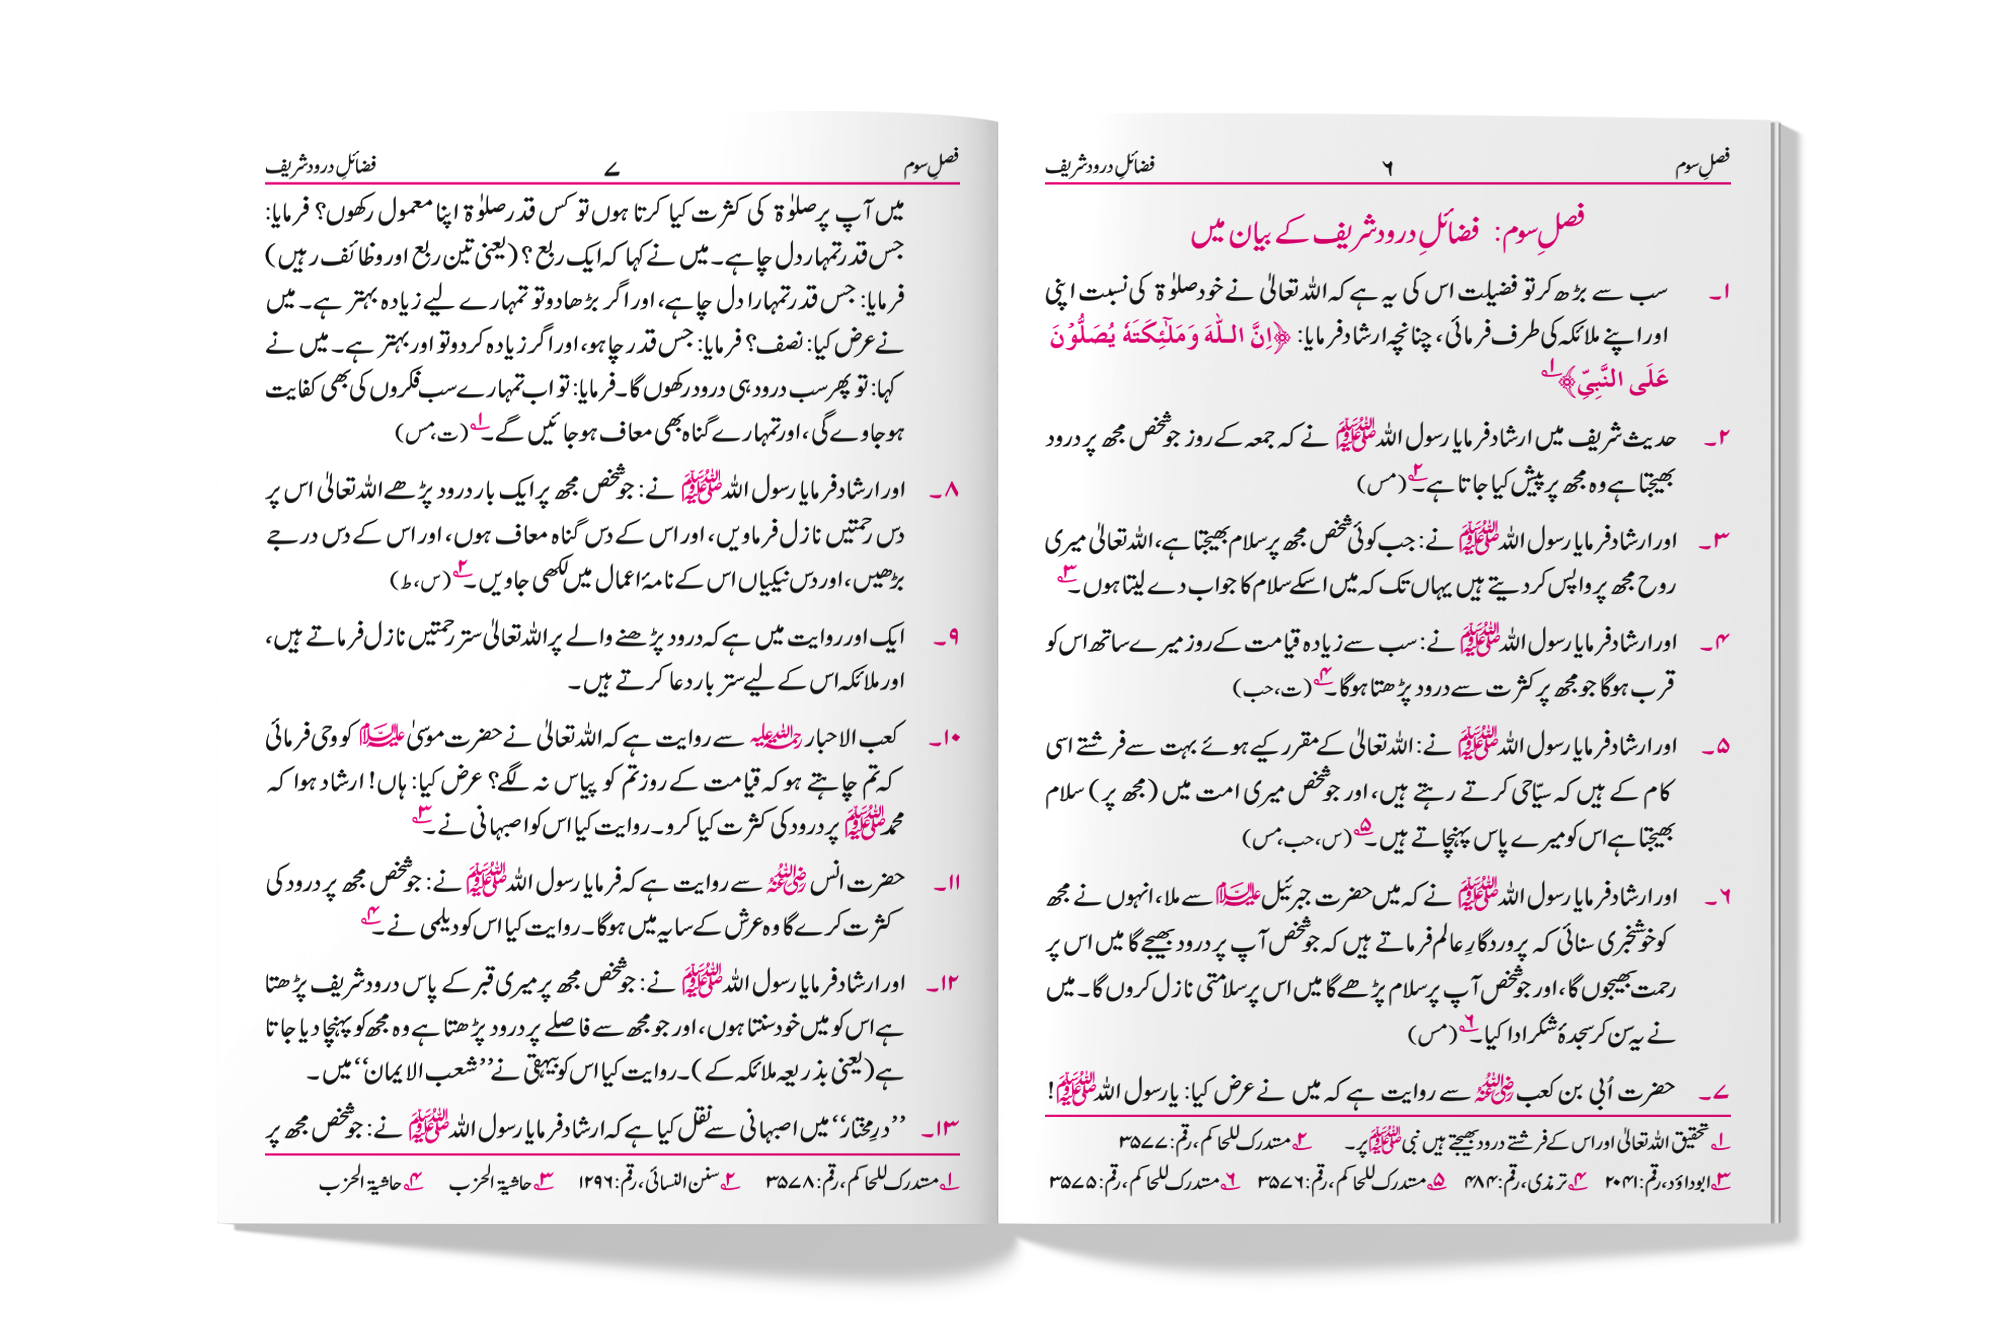 فصلِ سوم ۶ فضائلِ درود شریف
فصلِ سوم: فضائلِ درود شریف کے بیان میں
۱۔ سب سے بڑھ کر تو فضیلت اس کی یہ ہے کہ اللہ تعالیٰ نے خود صلوٰۃ کی نسبت اپنی
اور اپنے ملائکہ کی طرف فرمائی، چنانچہ ارشاد فرمایا: ﴿اِنَّ اللّٰهَ وَمَلٰٓئِكَتَهٗ يُصَلُّوْنَ
عَلَى النَّبِيِّ﴾۱؎
۲۔ حدیث شریف میں ارشاد فرمایا رسول اللہ ﷺ نے کہ جمعہ کے روز جو شخص مجھ پر درود
بھیجتا ہے وہ مجھ پر پیش کیا جاتا ہے۔۲؎ (مس)
۳۔ اور ارشاد فرمایا رسول اللہ ﷺ نے: جب کوئی شخص مجھ پر سلام بھیجتا ہے، اللہ تعالیٰ میری
روح مجھ پر واپس کر دیتے ہیں یہاں تک کہ میں اسکے سلام کا جواب دے لیتا ہوں۔۳؎
۴۔ اور ارشاد فرمایا رسول اللہ ﷺ نے: سب سے زیادہ قیامت کے روز میرے ساتھ اس کو
قرب ہوگا جو مجھ پر کثرت سے درود پڑھتا ہوگا۔۴؎ (ت، حب)
۵۔ اور ارشاد فرمایا رسول اللہ ﷺ نے: اللہ تعالیٰ کے مقرر کیے ہوئے بہت سے فرشتے اسی
کام کے ہیں کہ سیّاحی کرتے رہتے ہیں، اور جو شخص میری امت میں (مجھ پر) سلام
بھیجتا ہے اس کو میرے پاس پہنچاتے ہیں۔۵؎ (س، حب، مس)
۶۔ اور ارشاد فرمایا رسول اللہ ﷺ نے کہ میں حضرت جبرئیل علیہ السلام سے ملا، انہوں نے مجھ
کو خوشخبری سنائی کہ پروردگارِ عالم فرماتے ہیں کہ جو شخص آپ پر درود بھیجے گا میں اس پر
رحمت بھیجوں گا، اور جو شخص آپ پر سلام پڑھے گا میں اس پر سلامتی نازل کروں گا۔ میں
نے یہ سن کر سجدۂ شکر ادا کیا۔۶؎ (مس)
۷۔ حضرت اُبی بن کعب رضی اللہ عنہ سے روایت ہے کہ میں نے عرض کیا: یا رسول اللہ ﷺ!
۱؎ تحقیق اللہ تعالیٰ اور اس کے فرشتے درود بھیجتے ہیں نبی ﷺ پر۔ ۲؎ مستدرک للحاکم، رقم: ۳۵۷۷
۳؎ ابوداؤد، رقم: ۲۰۴۱ ۴؎ ترمذی، رقم: ۴۸۴ ۵؎ مستدرک للحاکم، رقم: ۳۵۷۶ ۶؎ مستدرک للحاکم، رقم: ۳۵۷۵
فصلِ سوم ۷ فضائلِ درود شریف
میں آپ پر صلوٰۃ کی کثرت کیا کرتا ہوں تو کس قدر صلوٰۃ اپنا معمول رکھوں؟ فرمایا:
جس قدر تمہار دل چاہے۔ میں نے کہا کہ ایک ربع؟ (یعنی تین ربع اور وظائف رہیں)
فرمایا: جس قدر تمہارا دل چاہے، اور اگر بڑھا دو تو تمہارے لیے زیادہ بہتر ہے۔ میں
نے عرض کیا: نصف؟ فرمایا: جس قدر چاہو، اور اگر زیادہ کر دو تو اور بہتر ہے۔ میں نے
کہا: تو پھر سب درود ہی درود رکھوں گا۔ فرمایا: تو اب تمہارے سب فکروں کی بھی کفایت
ہو جاوے گی، اور تمہارے گناہ بھی معاف ہو جائیں گے۔۱؎ (ت، مس)
۸۔ اور ارشاد فرمایا رسول اللہ ﷺ نے: جو شخص مجھ پر ایک بار درود پڑھے اللہ تعالیٰ اس پر
دس رحمتیں نازل فرماویں، اور اس کے دس گناہ معاف ہوں، اور اس کے دس درجے
بڑھیں، اور دس نیکیاں اس کے نامۂ اعمال میں لکھی جاویں۔۲؎ (س، ط)
۹۔ ایک اور روایت میں ہے کہ درود پڑھنے والے پر اللہ تعالیٰ ستر رحمتیں نازل فرماتے ہیں،
اور ملائکہ اس کے لیے ستر بار دعا کرتے ہیں۔
۱۰۔ کعب الاحبار رحمۃ اللہ علیہ سے روایت ہے کہ اللہ تعالیٰ نے حضرت موسیٰ علیہ السلام کو وحی فرمائی
کہ تم چاہتے ہو کہ قیامت کے روز تم کو پیاس نہ لگے؟ عرض کیا: ہاں! ارشاد ہوا کہ
محمد ﷺ پر درود کی کثرت کیا کرو۔ روایت کیا اس کو اصبہانی نے۔۳؎
۱۱۔ حضرت انس رضی اللہ عنہ سے روایت ہے کہ فرمایا رسول اللہ ﷺ نے: جو شخص مجھ پر درود کی
کثرت کرے گا وہ عرش کے سایہ میں ہوگا۔ روایت کیا اس کو دیلمی نے۔۴؎
۱۲۔ اور ارشاد فرمایا رسول اللہ ﷺ نے: جو شخص مجھ پر میری قبر کے پاس درود شریف پڑھتا
ہے اس کو میں خود سنتا ہوں، اور جو مجھ سے فاصلے پر درود پڑھتا ہے وہ مجھ کو پہنچا دیا جاتا
ہے (یعنی بذریعہ ملائکہ کے)۔ روایت کیا اس کو بیہقی نے ’’شعب الایمان‘‘ میں۔
۱۳۔ ’’درِ مختار‘‘ میں اصبہانی سے نقل کیا ہے کہ ارشاد فرمایا رسول اللہ ﷺ نے: جو شخص مجھ پر
۱؎ مستدرک للحاکم، رقم: ۳۵۷۸ ۲؎ سنن النسائی، رقم: ۱۲۹۶ ۳؎ حاشیۃ الحزب ۴؎ حاشیۃ الحزب